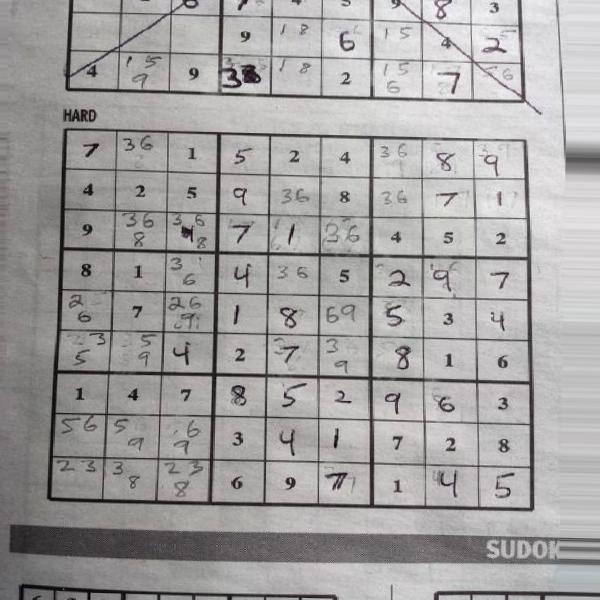 9 1 8 6 1 5 4 2
4 1 5 9 9 3 1 8 2 1 5 6 7 6
HARD
7 3 6 1 5 2 4 3 6 8 9
4 2 5 9 3 6 8 3 6 7 1
9 3 6 8 3 6 8 7 1 3 6 4 5 2
8 1 3 6 4 3 6 5 2 9 7
2 6 7 2 6 9 1 8 6 9 5 3 4
2 3 5 5 9 4 2 7 3 9 8 1 6
1 4 7 8 5 2 9 6 3
5 6 5 9 6 9 3 4 1 7 2 8
2 3 3 8 2 3 8 6 9 7 1 4 5